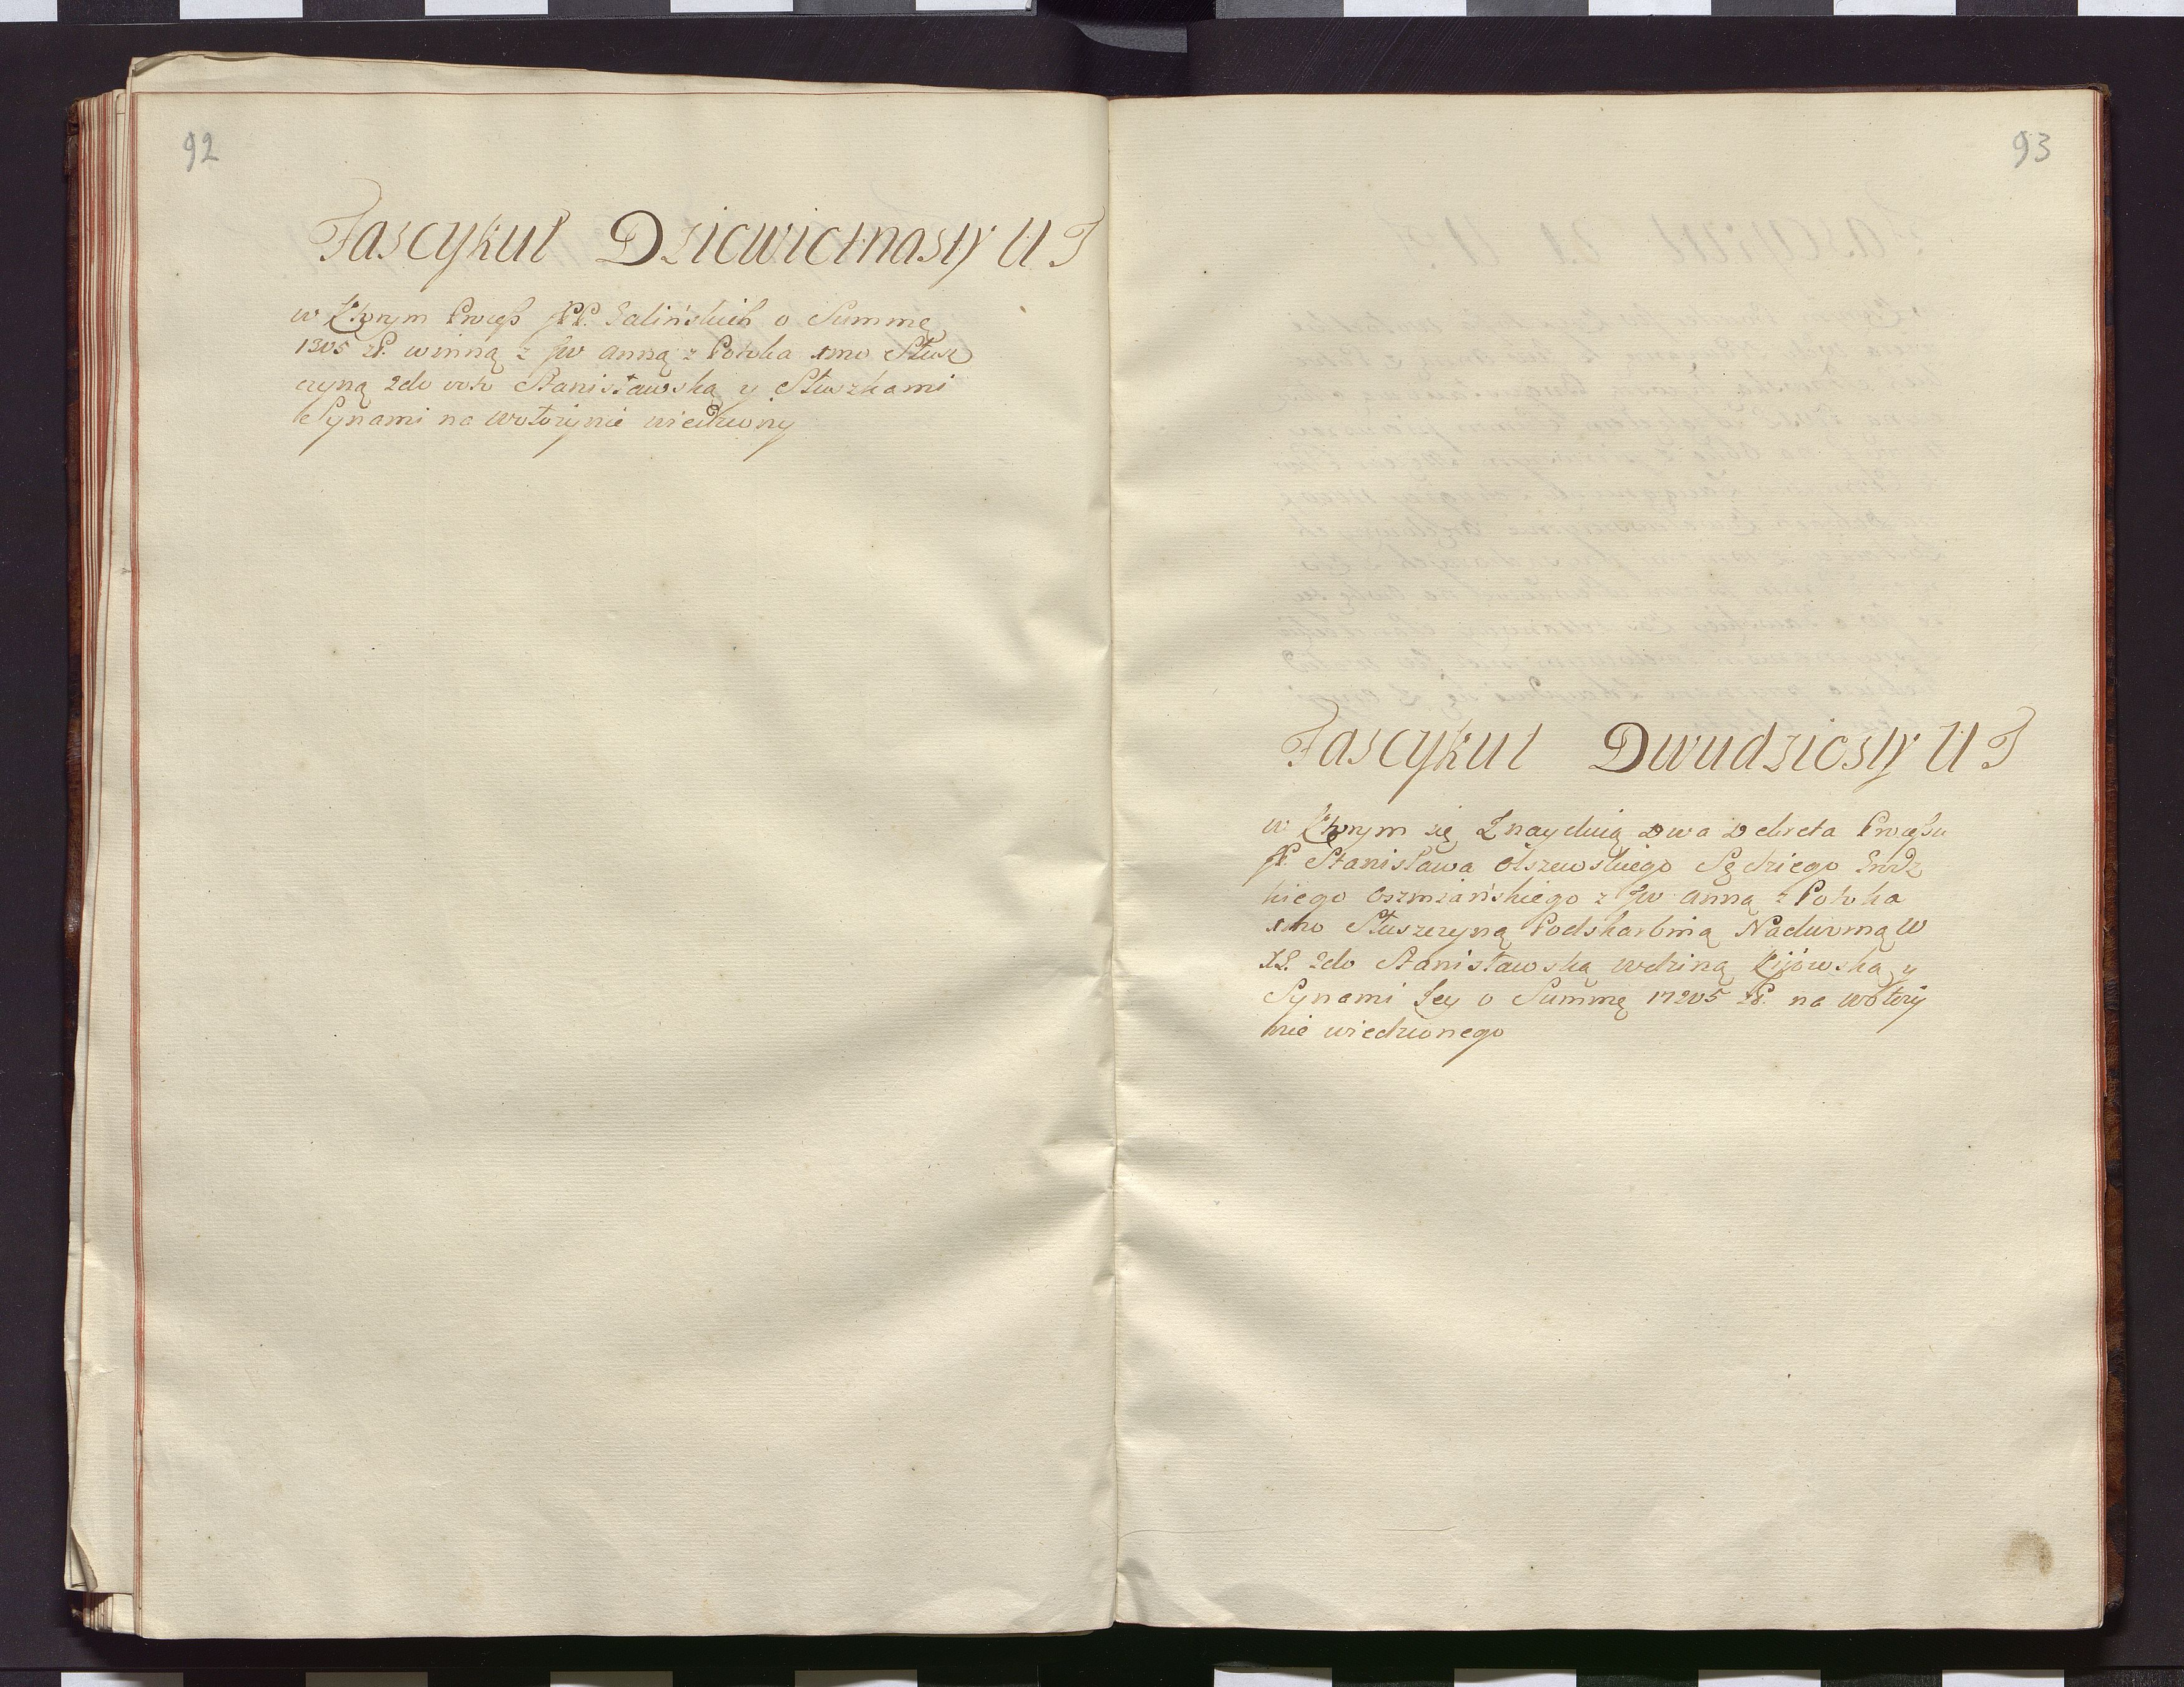 92
Fascykuł Dziewiętnasty U T
w Ktorym Process JPP. Galińskich o Summę
1305 zł. winną z JW Anną z Potoka 1mo Słusz
czyną 2do voto Stanisławską y Słuszkami
Synami na Wołoiynie wiedziony
93
Fascykuł Dwudziesty U T
w Ktorym się Znayduią Dwa Dekreta Processu
JP. Stanisława Olszewskiego Sędziego Grodz
kiego Oszmiańskiego z JW Anną z Potoka
1mo Słuszczyną Podskarbiną Nadworną W
XL. 2do Stanisławską Wdziną Kijowską y
Synami Jey o Summę 17205 zł. na Wołoiy
nie wiedzionego